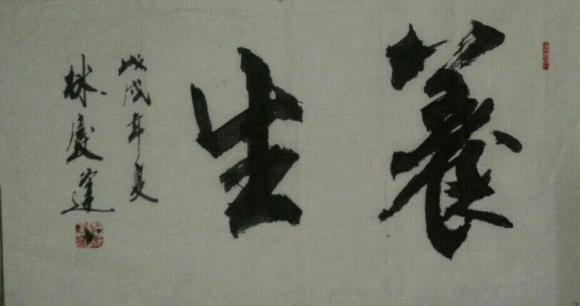 養生
戊戌年夏
林慶